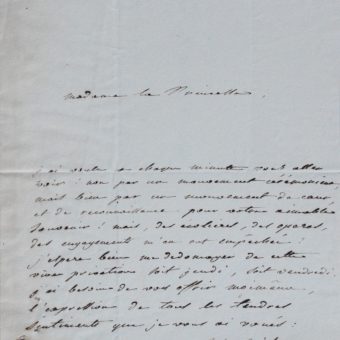 madame la Princesse,
j'ai voulu a chaque minute vous aller
voir: non par un mouvement cérémonieux,
mais bien par un mouvement de cœur
et de reconnaissance pour votre aimable
souvenir! mais, des écoliers, des operas,
des engagements m'en ont empechée!
j'espere bien me dedomager de cette
vive privation soit jeudi, soit vendredi.
j'ai besoin de vous offrir moi même,
l'expression de tous les tendres
sentiments que je vous ai voués: